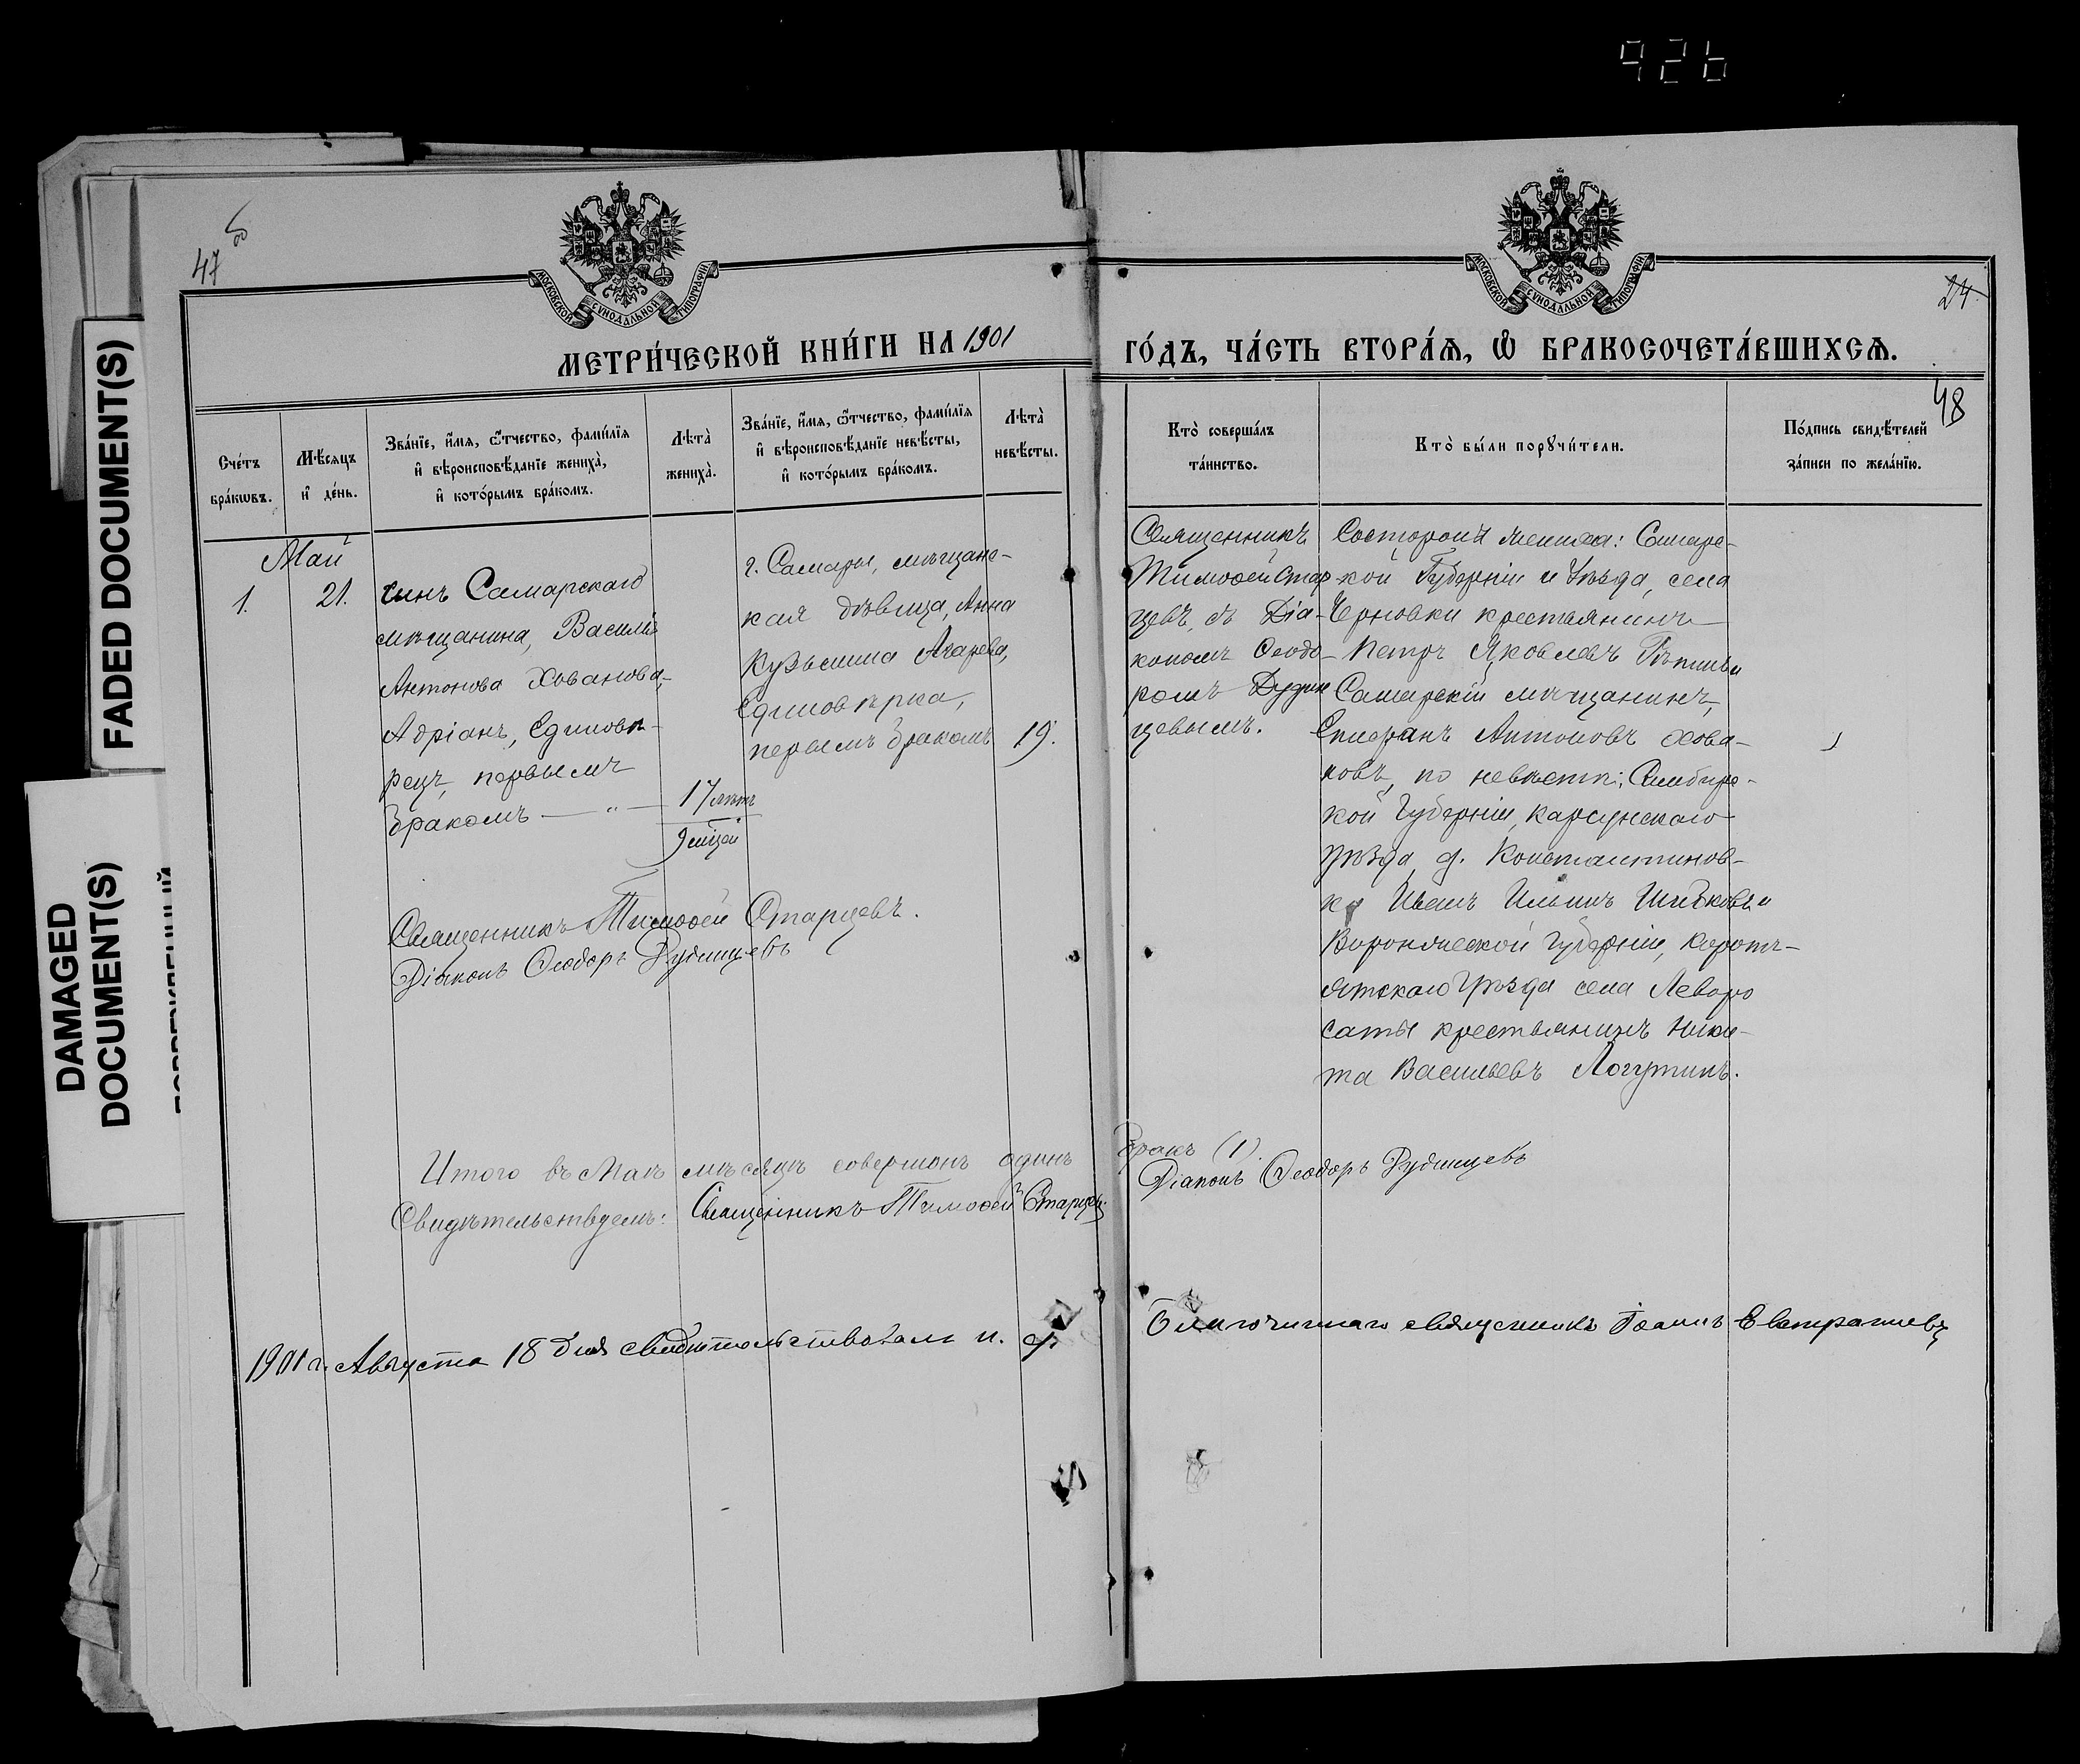 926
47 об
МОСКОВСКОЙ СѴНОДАЛЬНОЙ ТИПОГРАФІИ
МОСКОВСКОЙ СѴНОДАЛЬНОЙ ТИПОГРАФІИ
24
МЕТРИ́ЧЕСКОЙ КНИ́ГИ НА 1901
ГО́ДЪ, ЧА́СТЬ ВТОРА́Ѧ, Ѽ БРАКОСОЧЕТА́ВШИХСѦ.
48
Сче́тъ
бра́кѡвъ.
Мѣ́сяцъ
и҆ де́нь.
Зва́нїе, и҆́мѧ, ѻ҆́тчество, фами́лїѧ
и҆ вѣроисповѣ́данїе жениха̀,
и҆ кото́рымъ бра́комъ.
Лѣта̀
жениха̀.
Зва́нїе, и҆́мѧ, ѻ҆́тчество, фами́лїѧ
и҆ вѣроисповѣ́данїе невѣ́сты,
и҆ кото́рымъ бра́комъ.
Лѣта̀
невѣ́сты.
Кто̀ соверша́лъ
та́инство.
Кто̀ бы́ли порꙋчи́тели.
По́дпись свидѣ́телей
за́писи по жела́нїю.
Май
1.
21.
сынъ Самарскаго
мѣщанина, Василія
Антонова Хованова,
Адріанъ, Единовѣ-
рецъ, первымъ
бракомъ — „ —
17 лѣтъ
9 мѣцей
г. Самары, мѣщанс-
кая дѣвица, Анна
Кузьмина Агарева,
Единовѣрка,
первымъ бракомъ
19.
Священникъ
Тимоѳей Стар-
цевъ, съ Діа-
кономъ Ѳеодо-
ромъ Дудин
цевымъ.
Состороны жениха: Самарс-
кой Губерніи и Уѣзда, села
Черновки крестьянинъ
Петръ Яковлевъ и
Самарскій мѣщанинъ,
Епифанъ Антоновъ Хова-
новъ, по невѣстѣ: Симбирс-
кой Губерніи, Карсунскаго
уѣзда, д. Константинов-
ки Иванъ Ильинъ и
Воронежской Губерніи, Корот-
оятскаго Уѣзда села
крестьянинъ Ники-
та Васильевъ Логутинъ.
Священникъ Тимоѳей Старцевъ.
Діаконъ Ѳеодоръ Дудинцевъ
Итого въ Маѣ мѣсяцѣ совершонъ одинъ бракъ (1).
Свидѣтельствуемъ: Священникъ Тимоѳей Старцевъ
Діаконъ Ѳеодоръ Дудинцевъ
1901 г. Августа 18 дня свидѣтельствовалъ и. д. Благочиннаго священникъ Іоаннъ Евстратіевъ
FADED DOCUMENT(S)
DAMAGED
DOCUMENT(S)